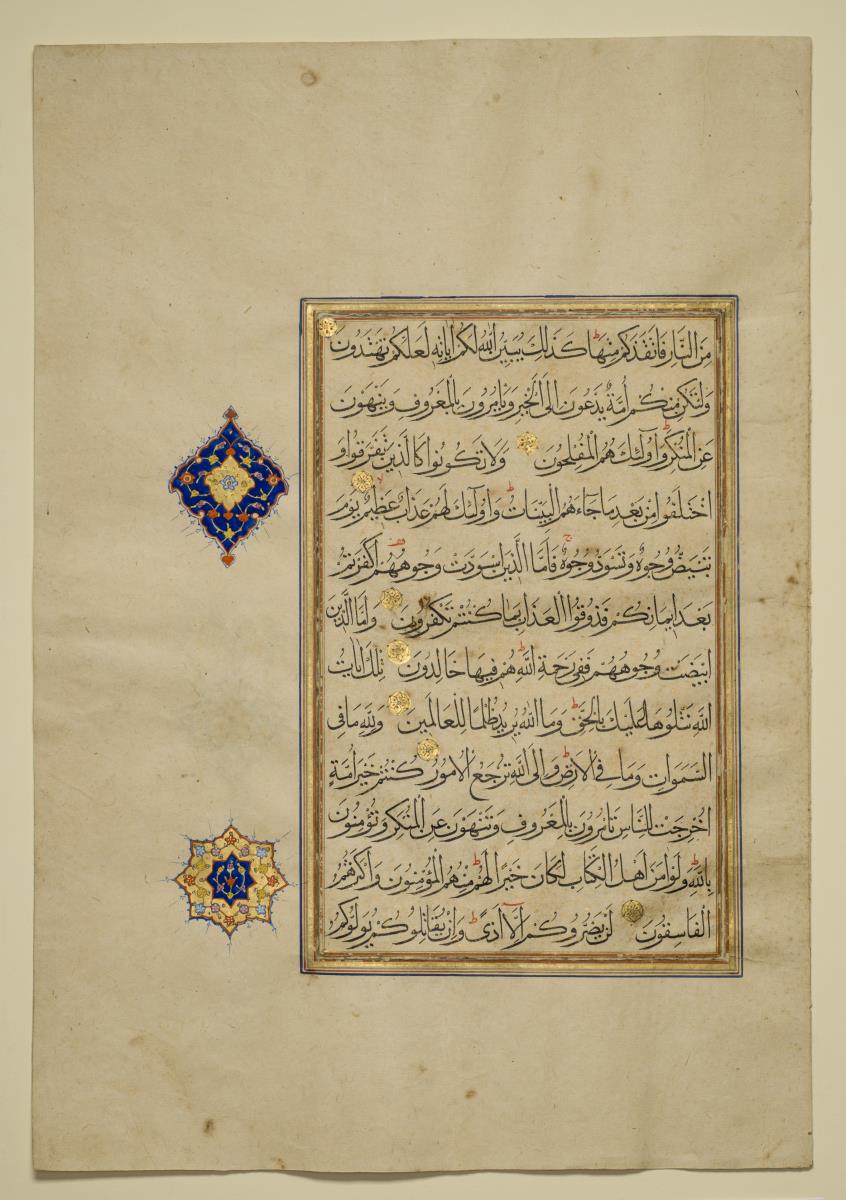 مِنَ النَّارِ فَانْقَذَكُمْ مِنْهَا ط كَذَلِكَ يُبَيِّنُ اللهُ لَكُمْ اٰيَاتِهِ لَعَلَّكُمْ تَهْتَدُونَ
وَلْتَكُنْ مِنْكُمْ أُمَّةٌ يَدْعُونَ اِلَى الْخَيْرِ وَيَامُرُونَ بِالْمَعْرُوفِ وَيَنْهَوْنَ
عَنِ الْمُنْكَرِ ط وَاُولٰئِكَ هُمُ الْمُفْلِحُونَ وَلَا تَكُونُوا كَالَّذِينَ تَفَرَّقُوا وَ
اخْتَلَفُوا مِنْ بَعْدِ مَا جَاءَهُمُ الْبَيِّنَاتُ ط وَاُولٰئِكَ لَهُمْ عَذَابٌ عَظِيمٌ لا يَوْمَ
تَبْيَضُّ وُجُوهٌ وَتَسْوَدُّ وُجُوهٌ ج فَاَمَّا الَّذِينَ اسْوَدَّتْ وُجُوهُهُمْ قف اَكَفَرْتُمْ
بَعْدَ اِيمَانِكُمْ فَذُوقُوا الْعَذَابَ بِمَا كُنْتُمْ تَكْفُرُونَ وَاَمَّا الَّذِينَ
ابْيَضَّتْ وُجُوهُهُمْ فَفِي رَحْمَةِ اللهِ ط هُمْ فِيهَا خَالِدُونَ تِلْكَ اٰيَاتُ
اللهِ نَتْلُوهَا عَلَيْكَ بِالْحَقِّ ط وَمَا اللهُ يُرِيدُ ظُلْمًا لِلْعَالَمِينَ وَلِلّٰهِ مَا فِي
السَّمٰوَاتِ وَمَا فِي الْاَرْضِ ط وَاِلَى اللهِ تُرْجَعُ الْاُمُورُ كُنْتُمْ خَيْرَ اُمَّةٍ
اُخْرِجَتْ لِلنَّاسِ تَامُرُونَ بِالْمَعْرُوفِ وَتَنْهَوْنَ عَنِ الْمُنْكَرِ وَتُؤْمِنُونَ
بِاللهِ ط وَلَوْ اٰمَنَ اَهْلُ الْكِتَابِ لَكَانَ خَيْرًا لَهُمْ ط مِنْهُمُ الْمُؤْمِنُونَ وَاَكْثَرُهُمُ
الْفَاسِقُونَ لَنْ يَضُرُّوكُمْ اِلَّا اَذًى ط وَاِنْ يُقَاتِلُوكُمْ يُوَلُّوكُمُ